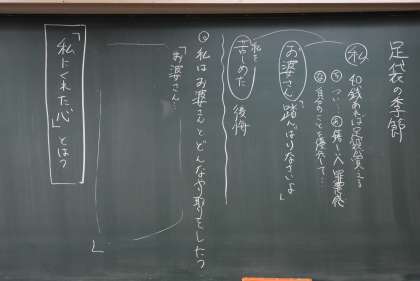 足袋の季節
私
40銭あれば足袋が買える
つい…
自分のことを
「お婆さん、踏んばりなさいよ」
私を
苦しめた 後悔
私はお婆さんとどんなやり取りをした?
「お婆さん…
」
「私にくれた心」とは?